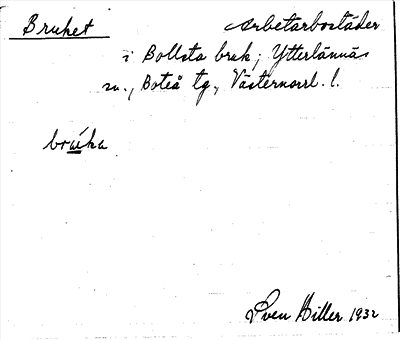 Bruket Arbetarbostäder
i Bollsta bruk, Ytterlännäs
sn., Boteå tg., Västernorrl. l.
bruka
Sven Hiller 1932